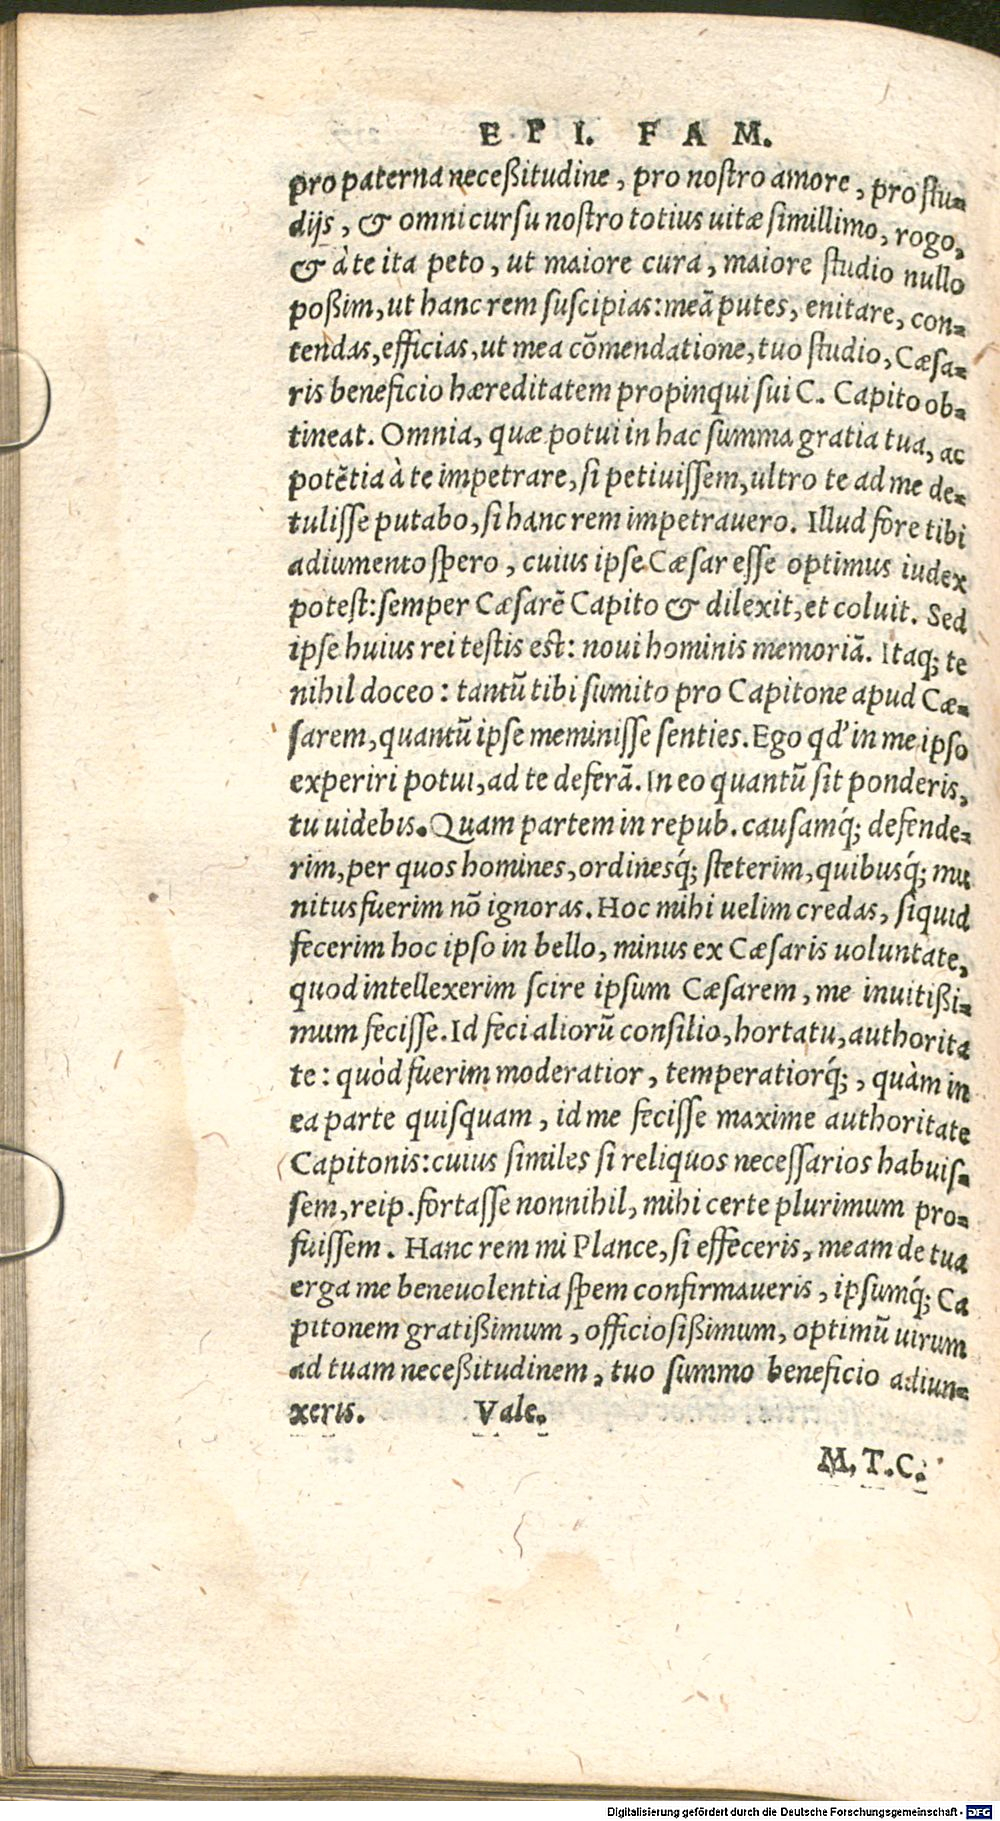 EPI. FAM.
pro paterna neceßitudine, pro nostro amore, pro stu-
dijs, & omni cursu nostro totius uitæ simillimo, rogo,
& à te ita peto, ut maiore cura, maiore studio nullo
poßim, ut hanc rem suscipias: meã putes, enitare, con-
tendas, efficias, ut mea cõmendatione, tuo studio, Cæsa-
ris beneficio hæreditatem propinqui sui C. Capito ob-
tineat. Omnia, quæ potui in hac summa gratia tua, ac
potẽtia à te impetrare, si petiuissem, ultro te ad me de-
tulisse putabo, si hanc rem impetrauero. Illud fore tibi
adiumento spero, cuius ipse Cæsar esse optimus iudex
potest: semper Cæsarẽ Capito & dilexit, et coluit. Sed
ipse huius rei testis est: noui hominis memoriã. Itaq; te
nihil doceo: tantũ tibi sumito pro Capitone apud Cæ-
sarem, quantũ ipse meminisse senties. Ego qd' in me ipso
experiri potui, ad te deferã. In eo quantũ sit ponderis,
tu uidebis. Quam partem in repub. causamq́; defende-
rim, per quos homines, ordinesq́; steterim, quibusq́; mu
nitus fuerim nõ ignoras. Hoc mihi uelim credas, siquid
fecerim hoc ipso in bello, minus ex Cæsaris uoluntate,
quod intellexerim scire ipsum Cæsarem, me inuitißi-
mum fecisse. Id feci aliorũ consilio, hortatu, authorita
te: quòd fuerim moderatior, temperatiorq́;, quàm in
ea parte quisquam, id me fecisse maxime authoritate
Capitonis: cuius similes si reliquos necessarios habuis-
sem, reip. fortasse nonnihil, mihi certe plurimum pro-
fuissem. Hanc rem mi Plance, si effeceris, meam de tua
erga me beneuolentia spem confirmaueris, ipsumq́; Ca
pitonem gratißimum, officiosißimum, optimũ uirum
ad tuam neceßitudinem, tuo summo beneficio adiun-
xeris. Vale.
M. T. C.
Digitalisierung gefördert durch die Deutsche Forschungsgemeinschaft - DFG